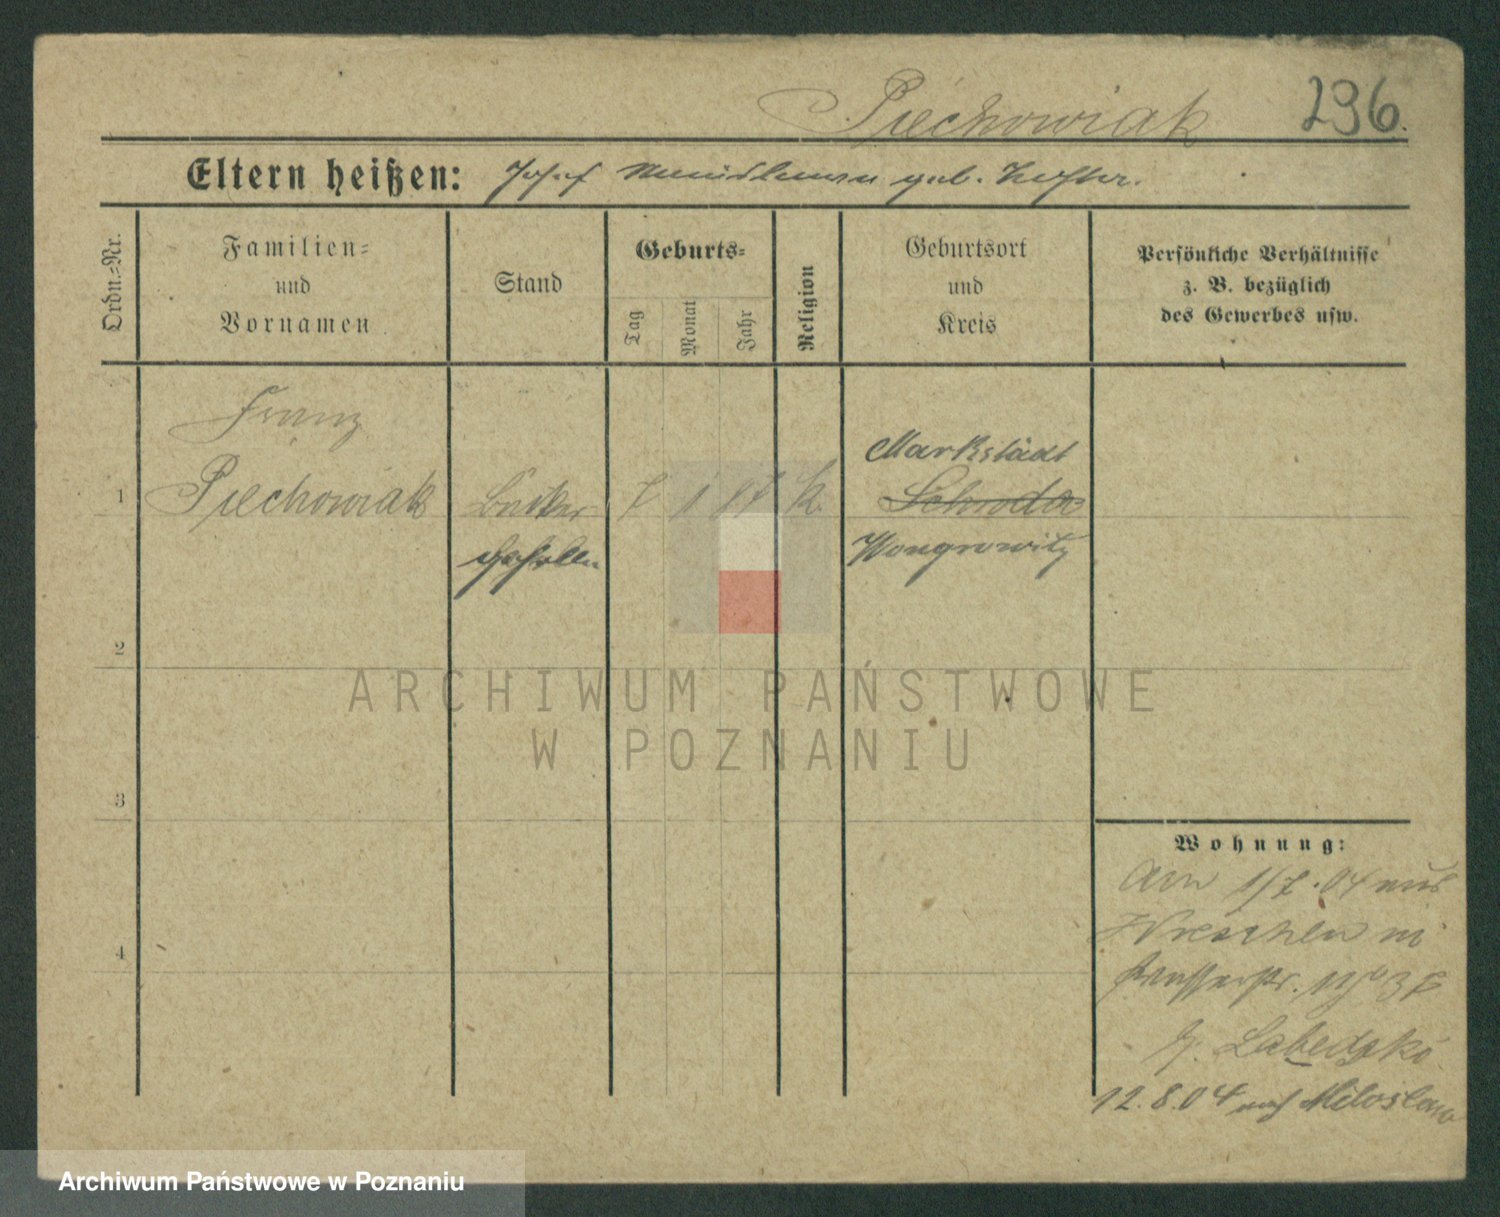 Piechowiak 296.
Eltern heißen: Josef geb.
Ordn.=Nr.
Familien=
und
Vornamen
Stand
Geburts=
Tag
Monat
Jahr
Religion
Geburtsort
und
Kreis
Persönliche Verhältnisse
z. B. bezüglich
des Gewerbes usw.
Franz
1 Piechowiak 7 1 87 K.
Markstädt
Schroda
Wongrowitz
2
3
4
Wohnung:
Am 1/7.04 aus
Wreschen in
12.8.04 nach Miloslaw
ARCHIWUM PAŃSTWOWE
W POZNANIU
Archiwum Państwowe w Poznaniu